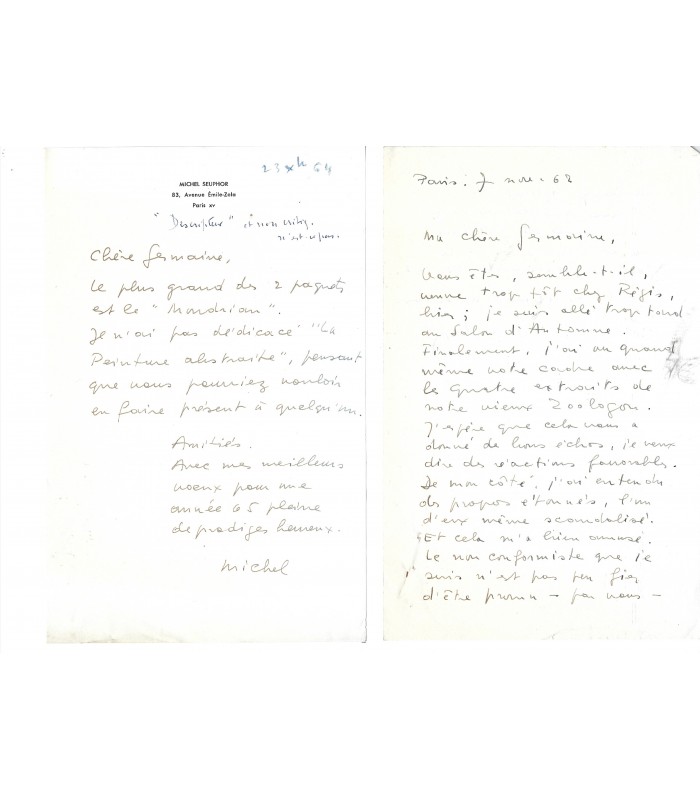 23 XII 64
MICHEL SEUPHOR
83, Avenue Émile-Zola
Paris XV
"Descripteur" et non
n'est-ce pas.
Chère Germaine,
Le plus grand des 2 paquets
est le "Mondrian".
Je n'ai pas dédicacé "La
Peinture abstraite", pensant
que vous pourriez vouloir
en faire présent à quelqu'un.
Amitiés.
Avec mes meilleurs
voeux pour une
année 65 pleine
de prodiges heureux.
Michel
Paris. 7 nov. 62
Ma chère Germaine,
Vous êtes, semble-t-il,
venue trop tôt chez Régis,
hier; je suis allé trop tard
au Salon d'Automne.
Finalement, j'ai vu quand
même notre cadre avec
les quatre extraits de
notre vieux Zoologon.
J'espère que cela vous a
donné de bons échos, je veux
dire des réactions favorables.
De mon côté, j'ai entendu
des propos étonnés, l'un
d'eux même scandalisé.
Et cela m'a bien amusé.
Le non conformiste que je
suis n'est pas peu fier
d'être promu — par vous —